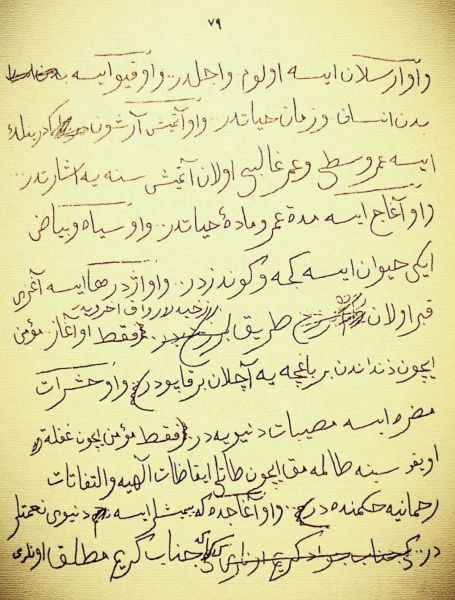 ٧٩
و او آرسلان ایسه اولوم و اجلدر. و او قیو ایسه
بدن انسان و زمان حیاتدر و او آلتمش آرشون درینلك
ایسه عمر وسطی و عمر غالبی اولان آلتمش سنه یه اشارتدر
و او آغاج ایسه مدة عمر و مادۀ حیاتدر. و او سیاه و بیاض
ایکی حیوان ایسه کیجه و کوندزدر. و او اژدرها ایسه آغزی
قبر اولان طریق برزخیه و رواق اخرویه در فقط او آغاز مؤمن
ایچون زنداندن بر باغچه یه آچلان بر قاپودر و او حشرات
مضره ایسه مصیبات دنیویه در فقط مؤمن ایچون غفلة
اویقوسنه طالمه مق ایچون طاتلی ایقاظات آلهیه و التفاتات
رحمانیه حکمنده در و او آغاجده که یمیشلر ایسه دنیوی نعمتلر
در جناب کریم مطلق اونلری